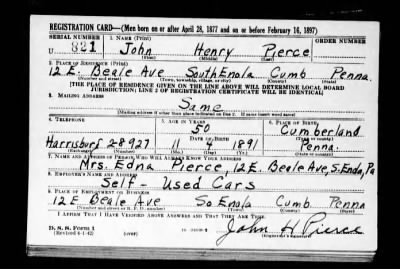 REGISTRATION CARD—(Men born on or after April 28, 1877 and on or before February 16, 1897)
SERIAL NUMBER 1. NAME (Print) ORDER NUMBER
U 821 John Henry Pierce
(First) (Middle) (Last)
2. PLACE OF RESIDENCE (Print)
12 E. Beale Ave South Enola Cumb. Penna.
(Number and street) (Town, township, village, or city) (County) (State)
[THE PLACE OF RESIDENCE GIVEN ON THE LINE ABOVE WILL DETERMINE LOCAL BOARD
JURISDICTION; LINE 2 OF REGISTRATION CERTIFICATE WILL BE IDENTICAL]
3. MAILING ADDRESS
Same
[Mailing address if other than place indicated on line 2. If same insert word same]
4. TELEPHONE 5. AGE IN YEARS 6. PLACE OF BIRTH
50 Cumberland
DATE OF BIRTH (Town or county)
Harrisburg 28927 11 4 1891 Penna.
(Exchange) (Number) (Mo.) (Day) (Yr.) (State or country)
7. NAME AND ADDRESS OF PERSON WHO WILL ALWAYS KNOW YOUR ADDRESS
Mrs. Edna Pierce, 12 E. Beale Ave, S. Enola, Pa
8. EMPLOYER'S NAME AND ADDRESS
Self - Used Cars
9. PLACE OF EMPLOYMENT OR BUSINESS
12 E Beale Ave So Enola Cumb Penna
(Number and street or R. F. D. number) (Town) (County) (State)
I AFFIRM THAT I HAVE VERIFIED ABOVE ANSWERS AND THAT THEY ARE TRUE.
D. S. S. Form 1
(Revised 4-1-42) (over) John H Pierce
(Registrant's signature)